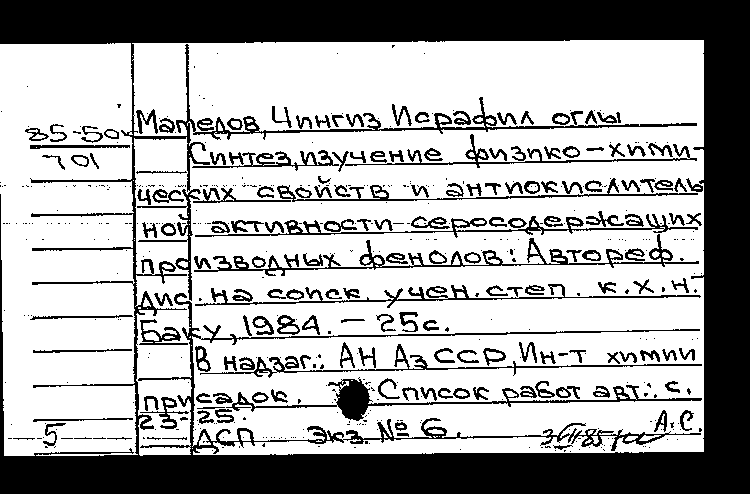 Мамедов, Чингиз Исрафил оглы
85-50к
701
Синтез, изучение физико-хими-
ческих свойств и антиокислитель
ной активности серосодержащих
производных фенолов: Автореф.
дис. на соиск. учен. степ. к.х.н.-
Баку, 1984. - 25с.
В надзаг.: АН АзССР, Ин-т химии
присадок. Список работ авт.: с.
23-25.
ДСП. Экз. № 6. А.С.
5